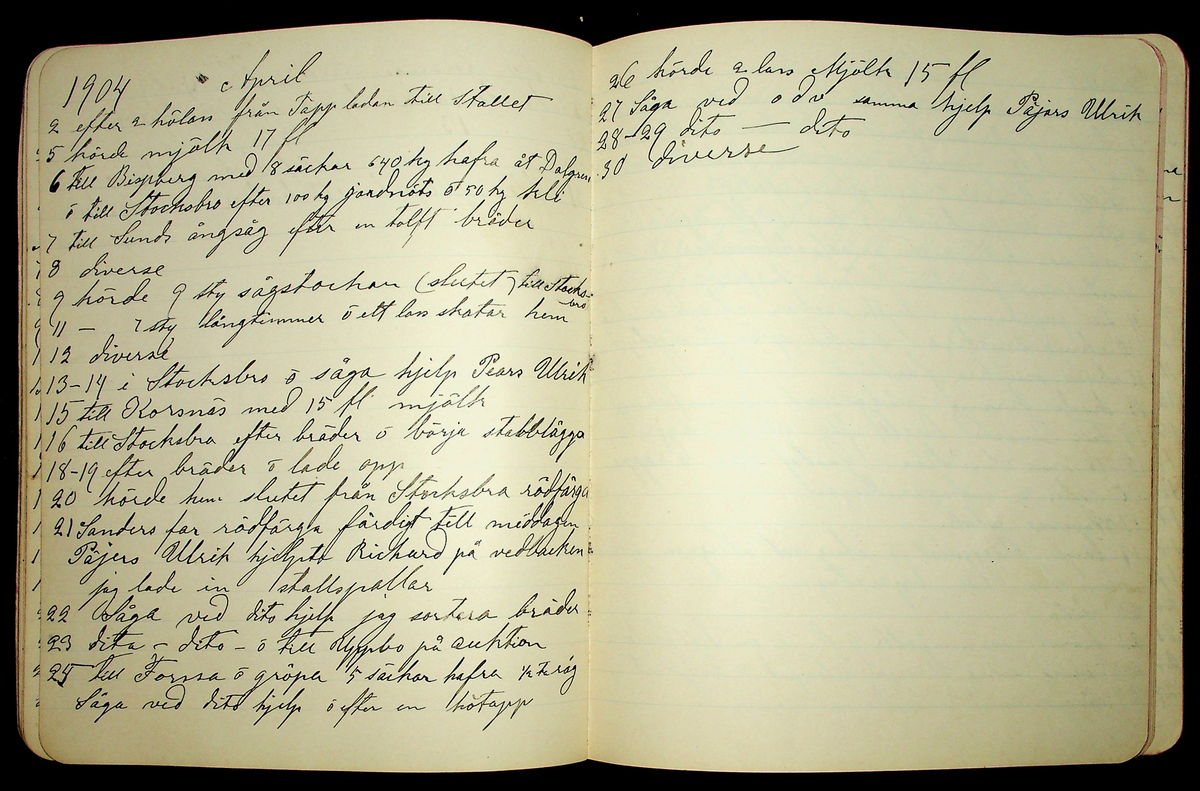 1904 April
2 efter 2 hölass från Tappladan till Stallet
5 körde mjölk 17 fl
6 till Bispberg med 8 säckar 640 kg hafra åt Dalgren
o till Stocksbro efter 100 kg jordnöts o 50 kg kli
7 till Sunds ångsåg efter en tolft bräder
8 diverse
9 körde 9 sty sågstockar (slutet) till Stocks-
bro
11 — 7 sty långtimmer o ett lass skatar hem
12 diverse
13-14 i Stocksbro o såga hjelp Pears Ulrik
15 till Korsnäs med 15 fl mjölk
16 till Stocksbro efter bräder o börja stabblägga
18-19 efter bräder o lade opp
20 körde hem slutet från Stocksbro rödfärga
21 Sanders far rödfärga färdigt till middagen
Päjers Ulrik hjelpte Richard på vedbacken
jag lade in stallspallar
22 Såga ved dito hjelp jag sortera bräder
23 dito - dito - o till Uppbo på auktion
25 till Forssa o gröpa 5 säckar hafra 1/2 t råg
Såga ved dito hjelp o efter en hötapp
26 körde 2 lass Mjölk 15 fl
27 Såga ved o d v samma hjelp Päjars Ulrik
28-29 dito — dito
30 diverse